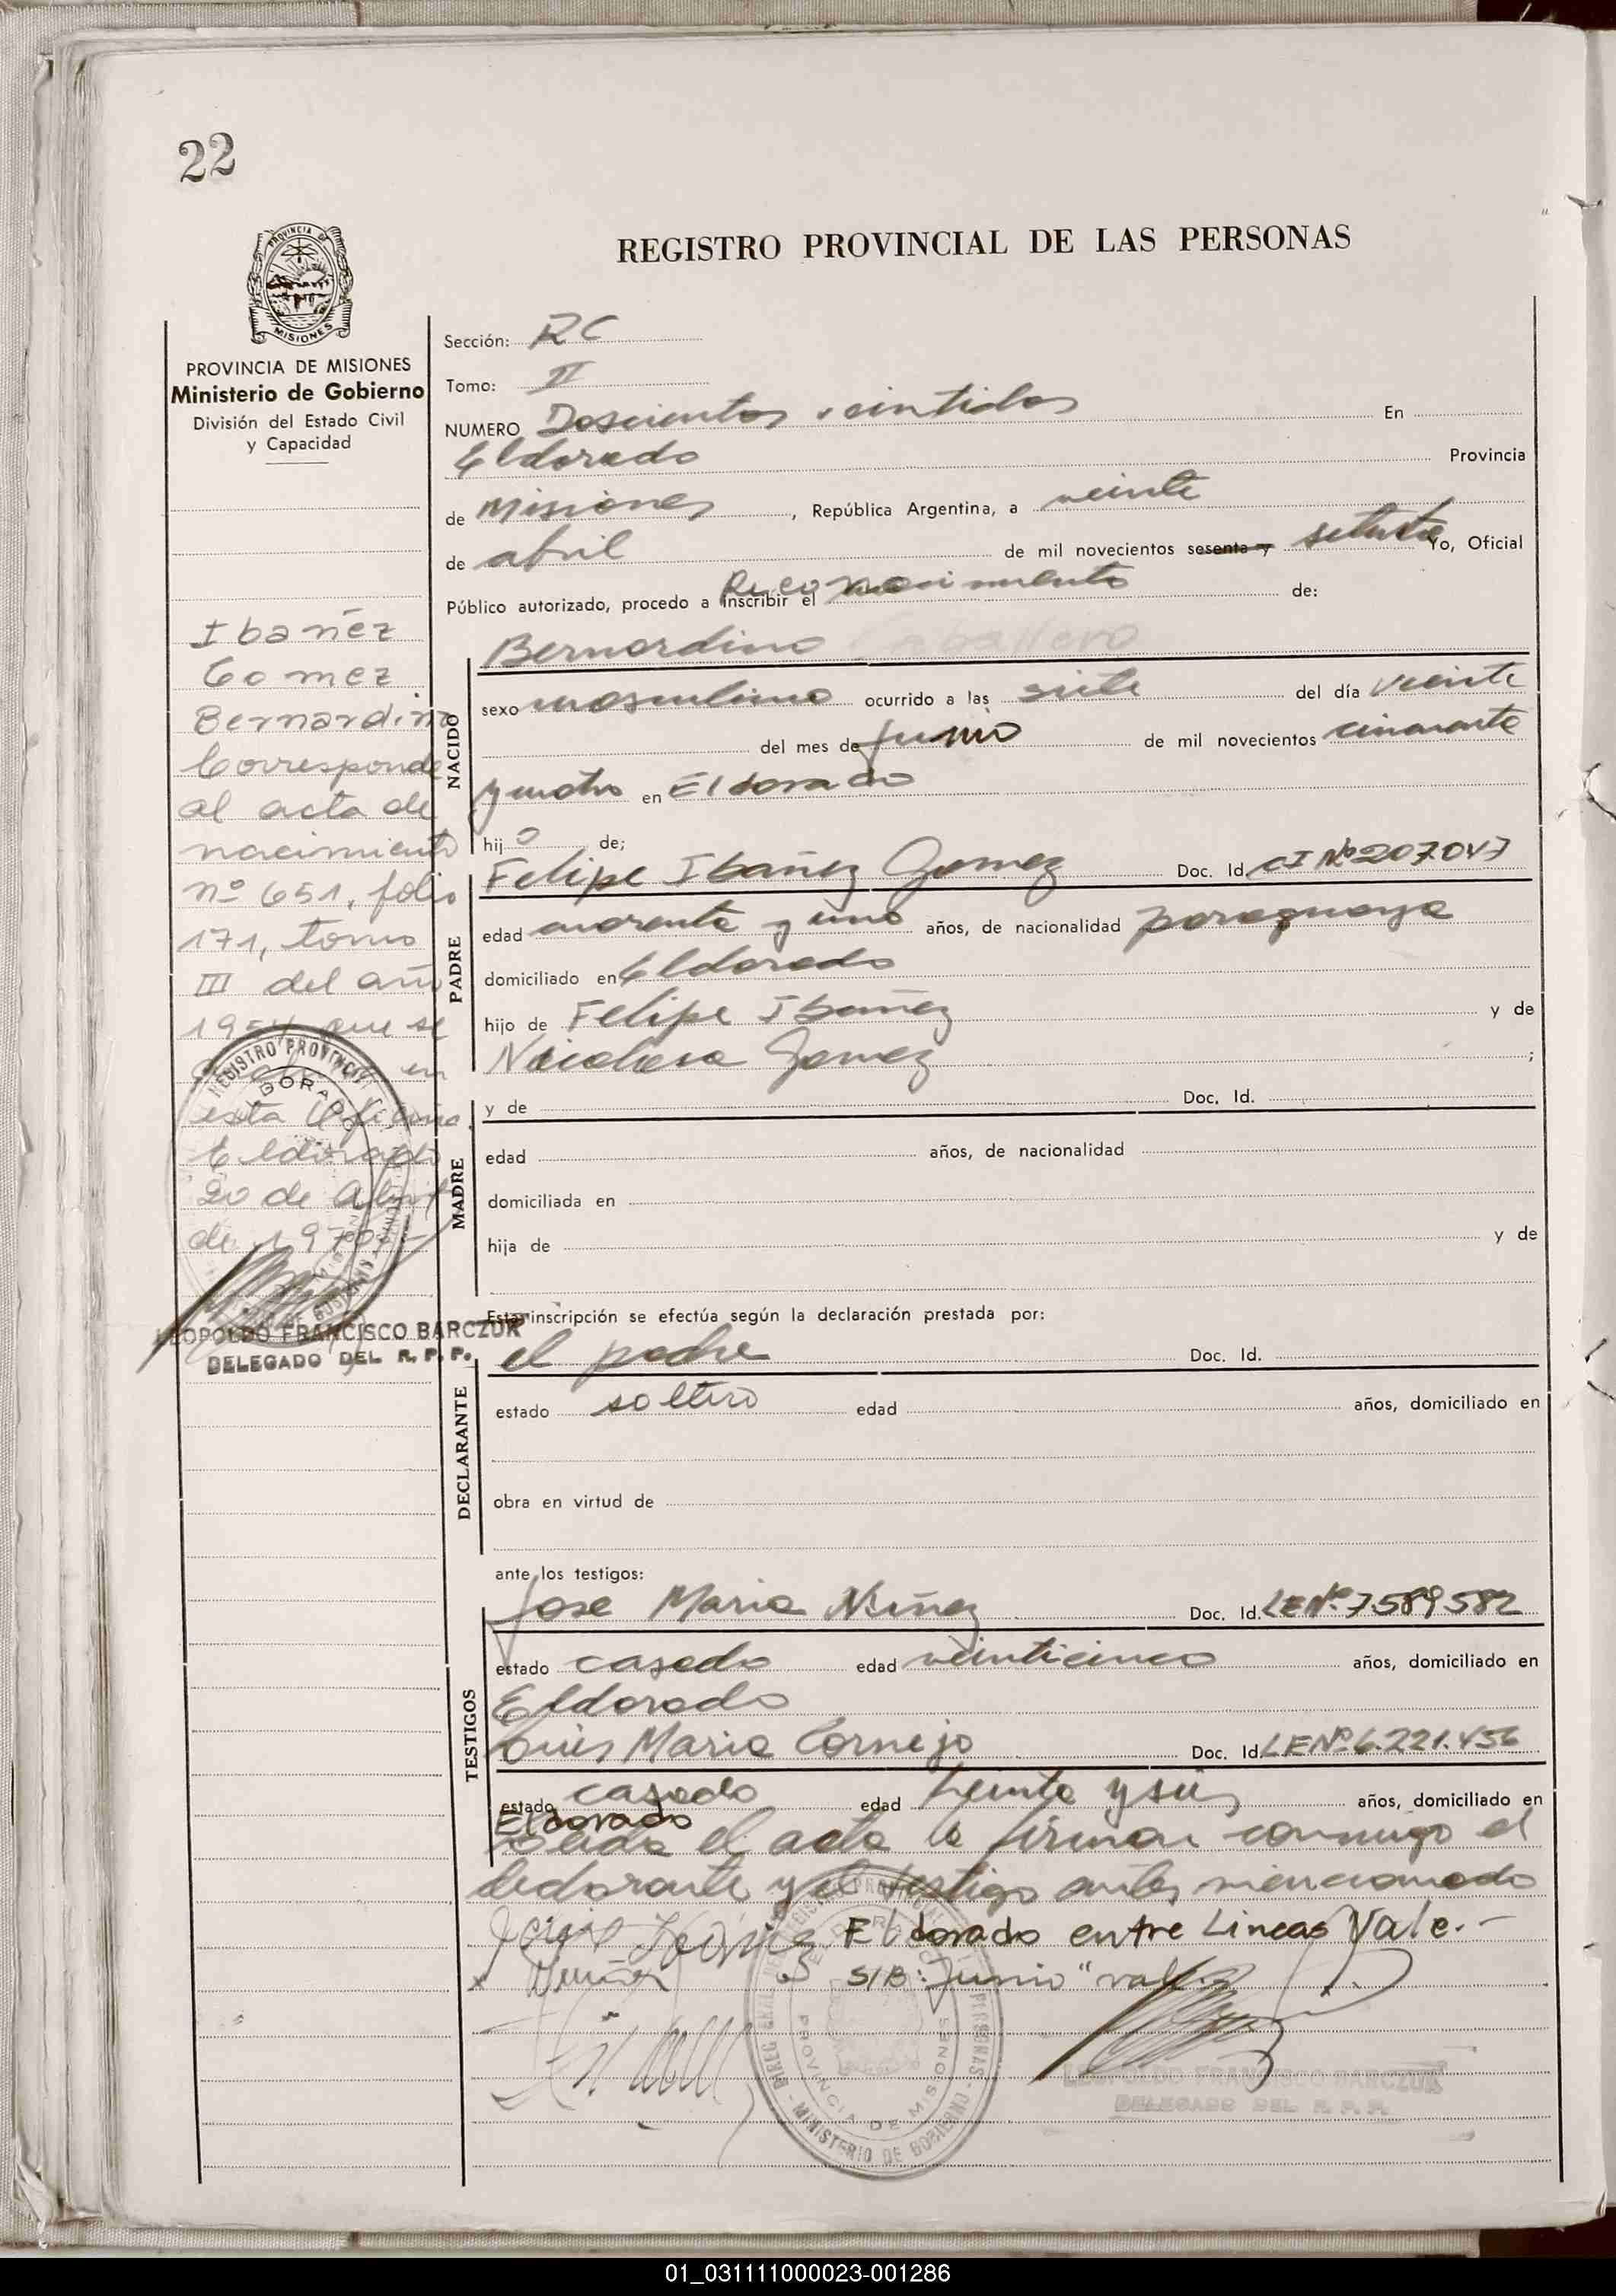 22
REGISTRO PROVINCIAL DE LAS PERSONAS
PROVINCIA DE
MISIONES
PROVINCIA DE MISIONES
Ministerio de Gobierno
División del Estado Civil
y Capacidad
Ibañez
Gomez
Bernardino
Corresponde
al acta de
nacimiento
nº 651, folio
171, tomo
III del año
1954 que se
en
esta Oficina
Eldorado
20 de Abril
de 1970
LEOPOLDO FRANCISCO BARCZUK
DELEGADO DEL R. P. P.
Sección: RC
Tomo: II
NUMERO Doscientos veintidos En
Eldorado Provincia
de Misiones, República Argentina, a veinte
de abril de mil novecientos sesenta y setenta Yo, Oficial
Público autorizado, procedo a inscribir el Reconocimiento de:
Bernardino
NACIDO
sexo masculino ocurrido a las siete del día veinte
del mes de Junio de mil novecientos cincuenta
y cuatro en Eldorado
hijo de;
Felipe Ibañez Gomez Doc. Id. CI Nº 207.047
PADRE
edad cuarenta y uno años, de nacionalidad paraguaya
domiciliado en Eldorado
hijo de Felipe Ibañez y de
Nicolasa Gomez ;
MADRE
y de Doc. Id.
edad años, de nacionalidad
domiciliada en
hija de y de
Esta inscripción se efectúa según la declaración prestada por:
el padre Doc. Id.
DECLARANTE
estado soltero edad años, domiciliado en
obra en virtud de
ante los testigos:
Jose Maria Nuñez Doc. Id. LE Nº 7.589.582
TESTIGOS
estado casado edad veinticinco años, domiciliado en
Eldorado
Luis Maria Cornejo Doc. Id. LE Nº 6.221.456
estado casado edad treinta y seis años, domiciliado en
Eldorado
Leida el acta la firman conmigo el
declarante y el testigo antes mencionado
Eldorado entre Lineas Vale.-
S/B: "Junio" vale
MINISTERIO DE GOBIERNO
PROVINCIA DE MISIONES
LEOPOLDO FRANCISCO BARCZUK
DELEGADO DEL R. P. P.
01_031111000023-001286